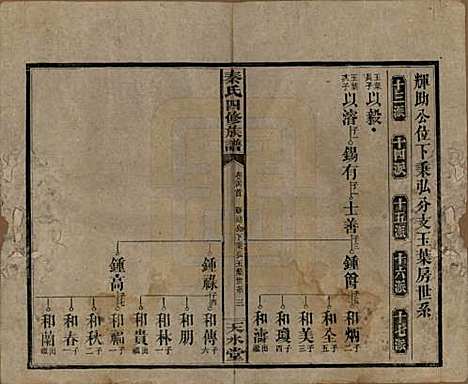 輝助公位下秉弘分支玉葉房世系
十三派
十四派
十五派
十六派
十七派
玉葉長子
以毅
玉葉次子
以濬
錫有
士善
鍾爵
和炳
和全
和美
和瓊
和濤
秦氏四修族譜
天水堂
鍾祿
和傳
和朋
和林
和貴
鍾高
和福
和秋
和春
和蘭